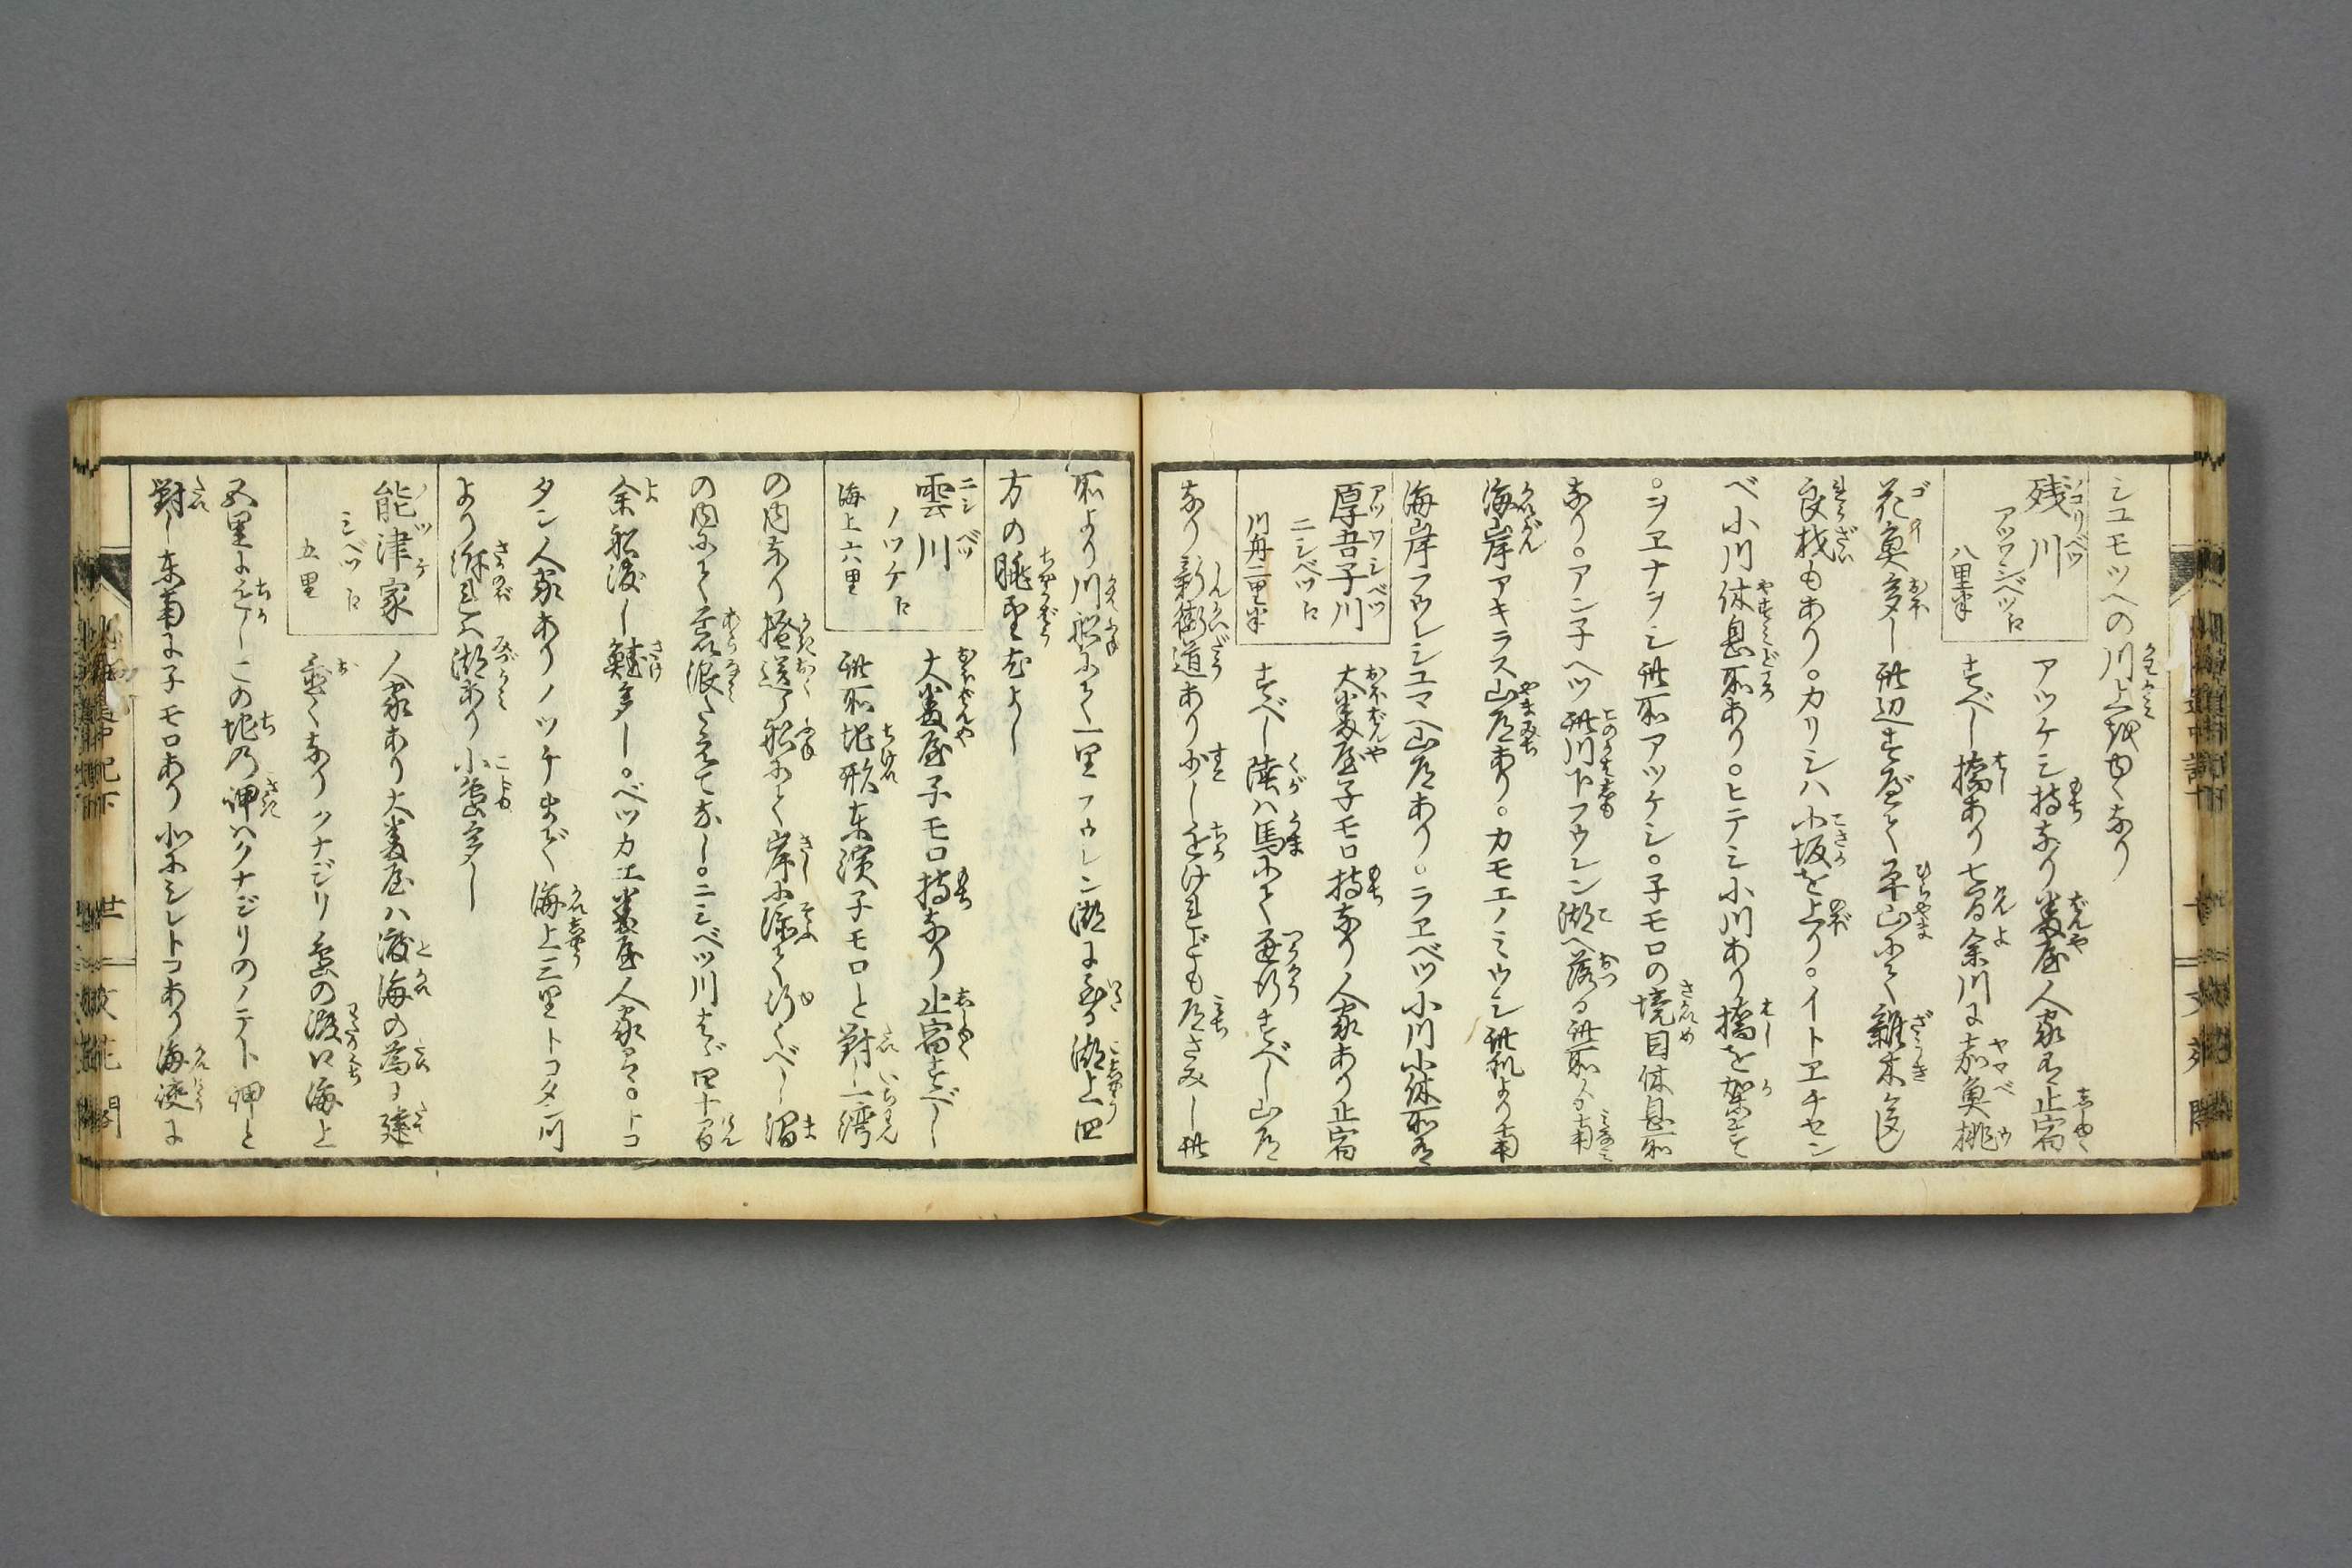 シユモツヘの川上故由くあり
残川
ノコリベツ
アツウシベツヘ
八里半
アツケシ持なり番屋人家有止宿
すべし橋あり七間余川に赤魚桃
花魚多し此辺すべて平山にて雑木多し
良材もあり。カリシハ小坂を上り。イトヱチセン
ベ小川休息所あり。ヒテシ小川あり橋を架す
。ヲヱナヲシ此所アツケシ。子モロの境目休息所
あり。アン子ヘツ此川下フウレン湖へ落る此所より南
海岸アキラス山道あり。カモエノミウシ此所より南
海岸フウレシユマヘ山道あり。ニヱベツ小川小休所有
厚吾子川
アツウシベツ
ニシベツヘ
川舟二里半
大番屋子モロ持なり人家あり止宿
すべし陸ハ馬にて通行すべし山道
あり新街道あり少し近けれども道さみし此
所より川船にて一里フウレン湖に至る湖上四
方の眺望尤よし
雲川
ニシベツ
ノツケヘ
海上六里
大番屋子モロ持なり止宿すべし
此所地形東濱子モロと對し一湾
の内なり掻送り船にて岸に添て行くべし湾
の内にて荒浪たえてなし。ニシベツ川はゞ四十間
余船渡し鮭多し。ベツカエ番屋人家有。トコ
タン人家ありノツケまで海上三里トコタン川
より泝れハ湖あり小島多し
能津家
ノツケ
シベツヘ
五里
人家あり大番屋ハ渡海の為に建
置くなりクナジリ島の渡口海上
五里よ近しこの地乃岬ハクナジリのノテト岬と
對し東南に子モロあり北にシレトコあり海峡に